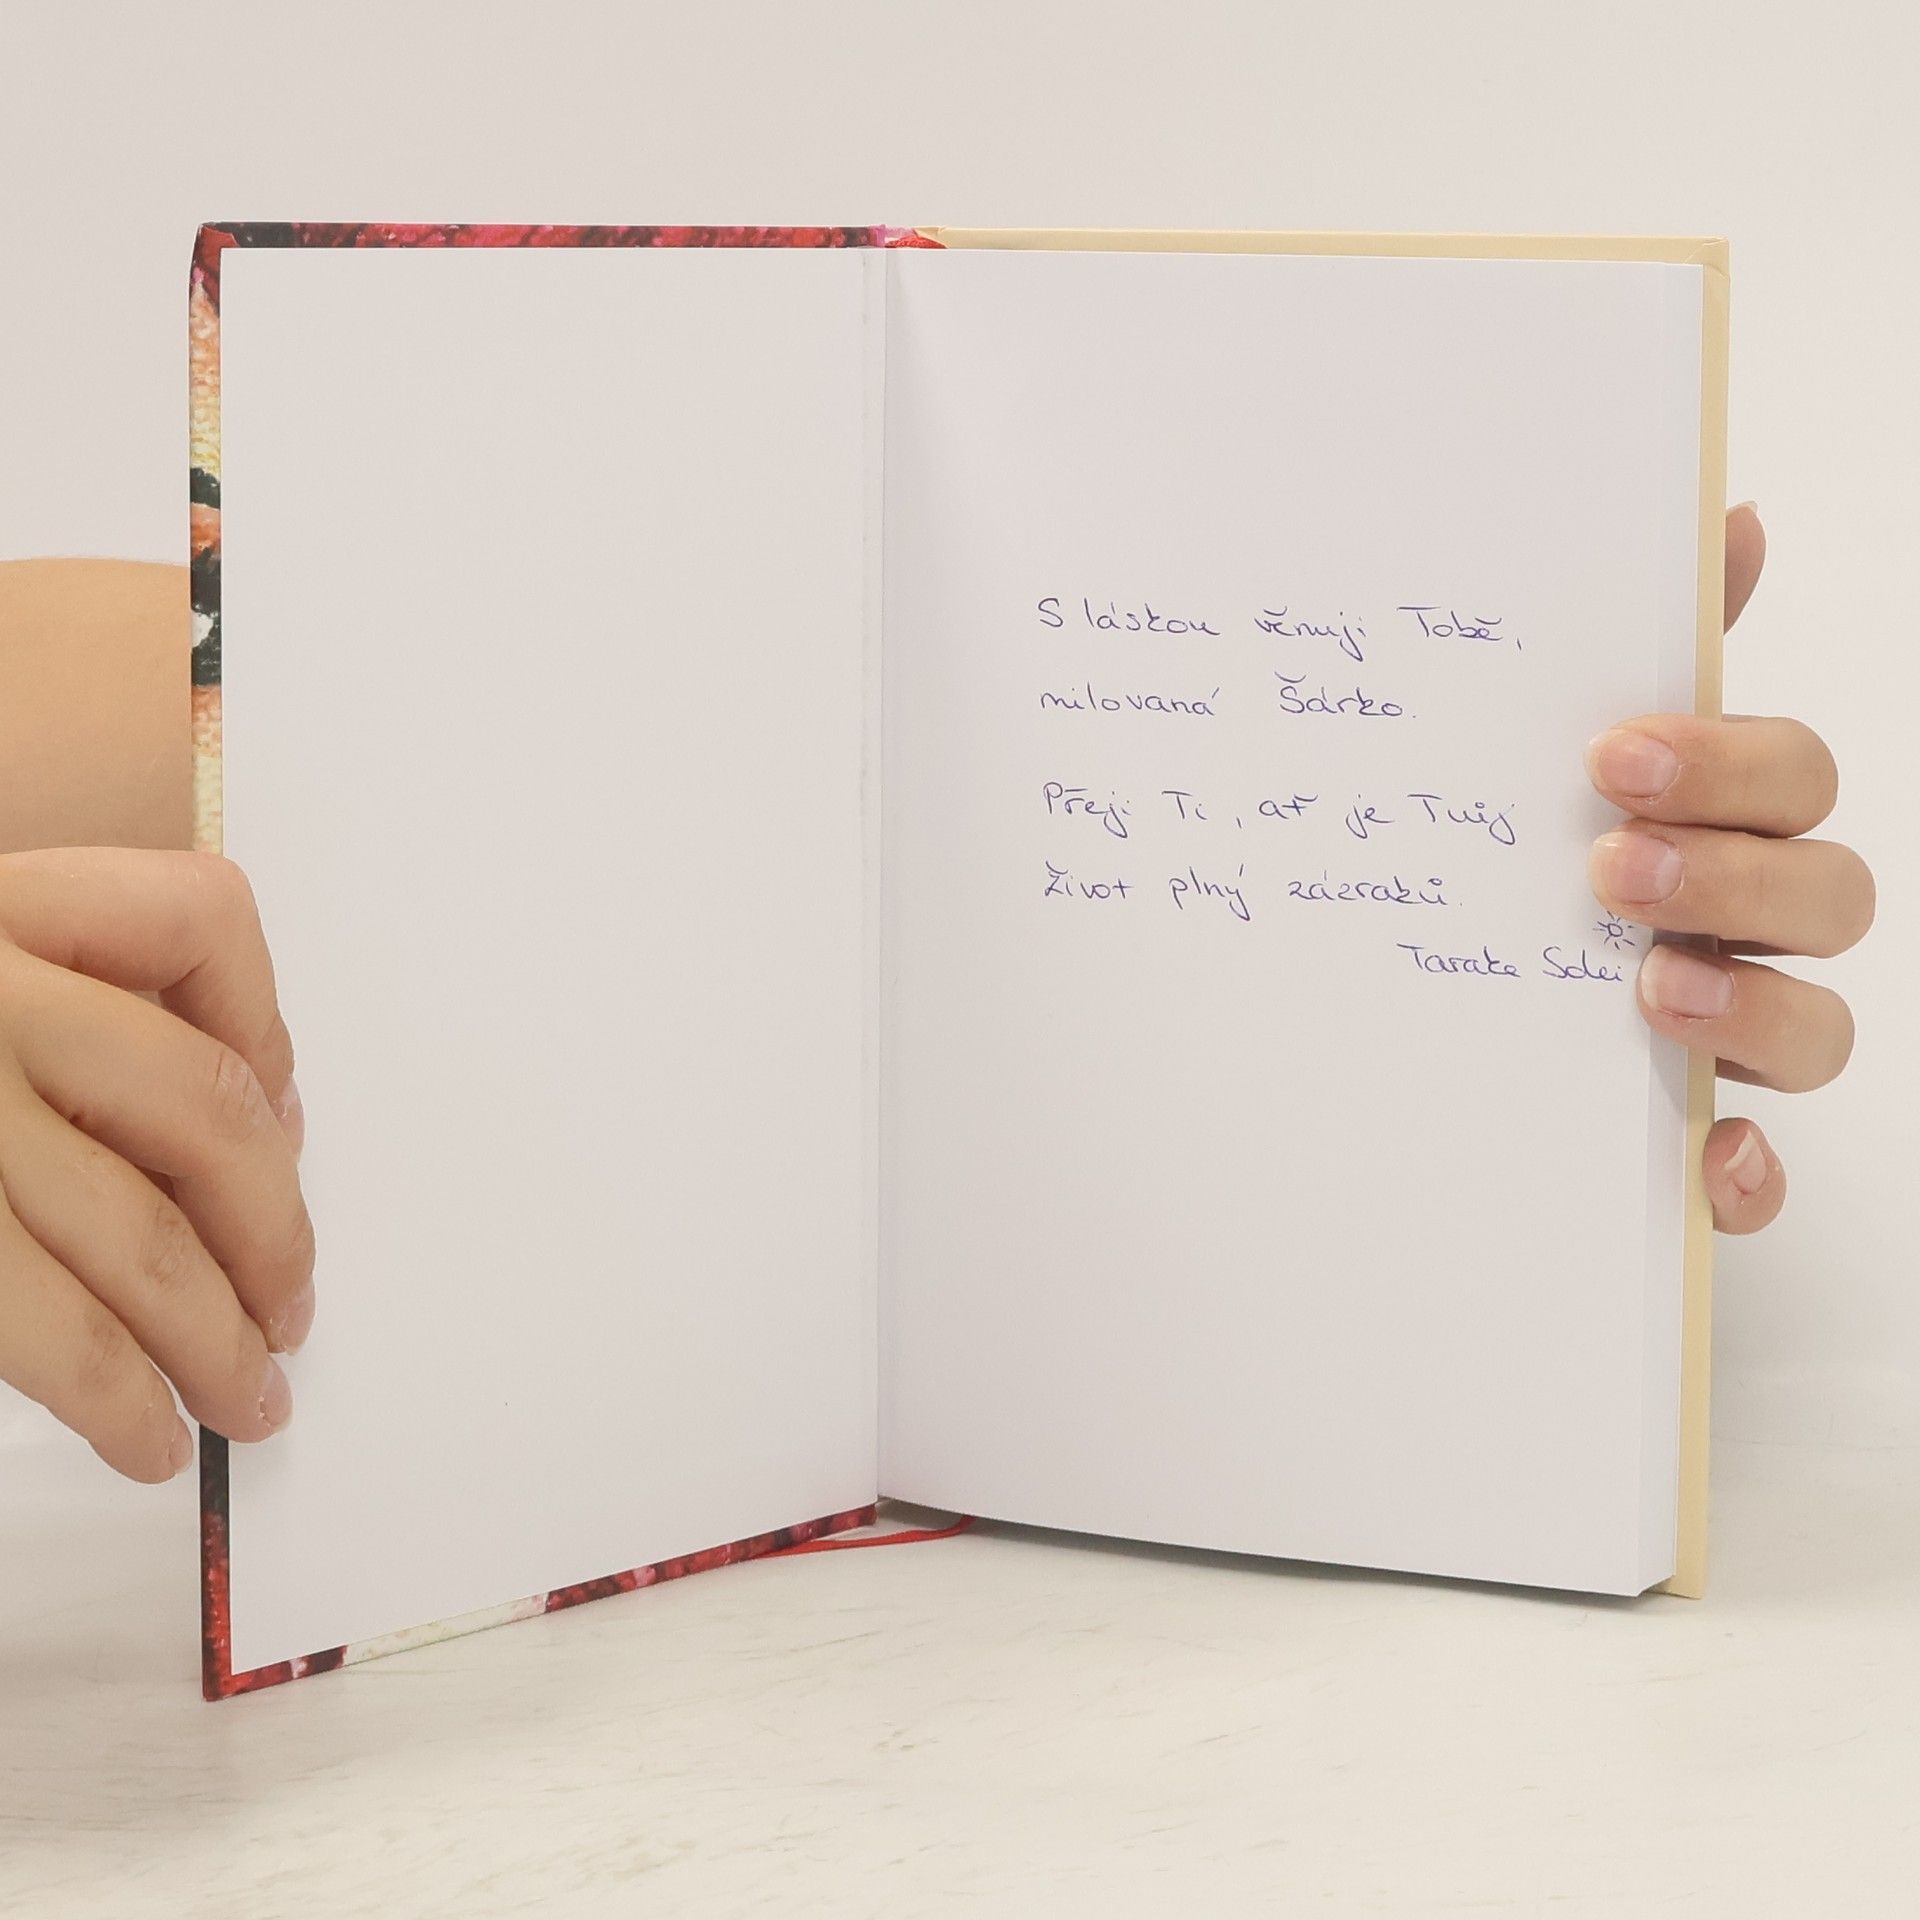 S láskou věnuji Tobě,
milovaná Šárko.
Přeji Ti, ať je Tvůj
život plný zázraků.